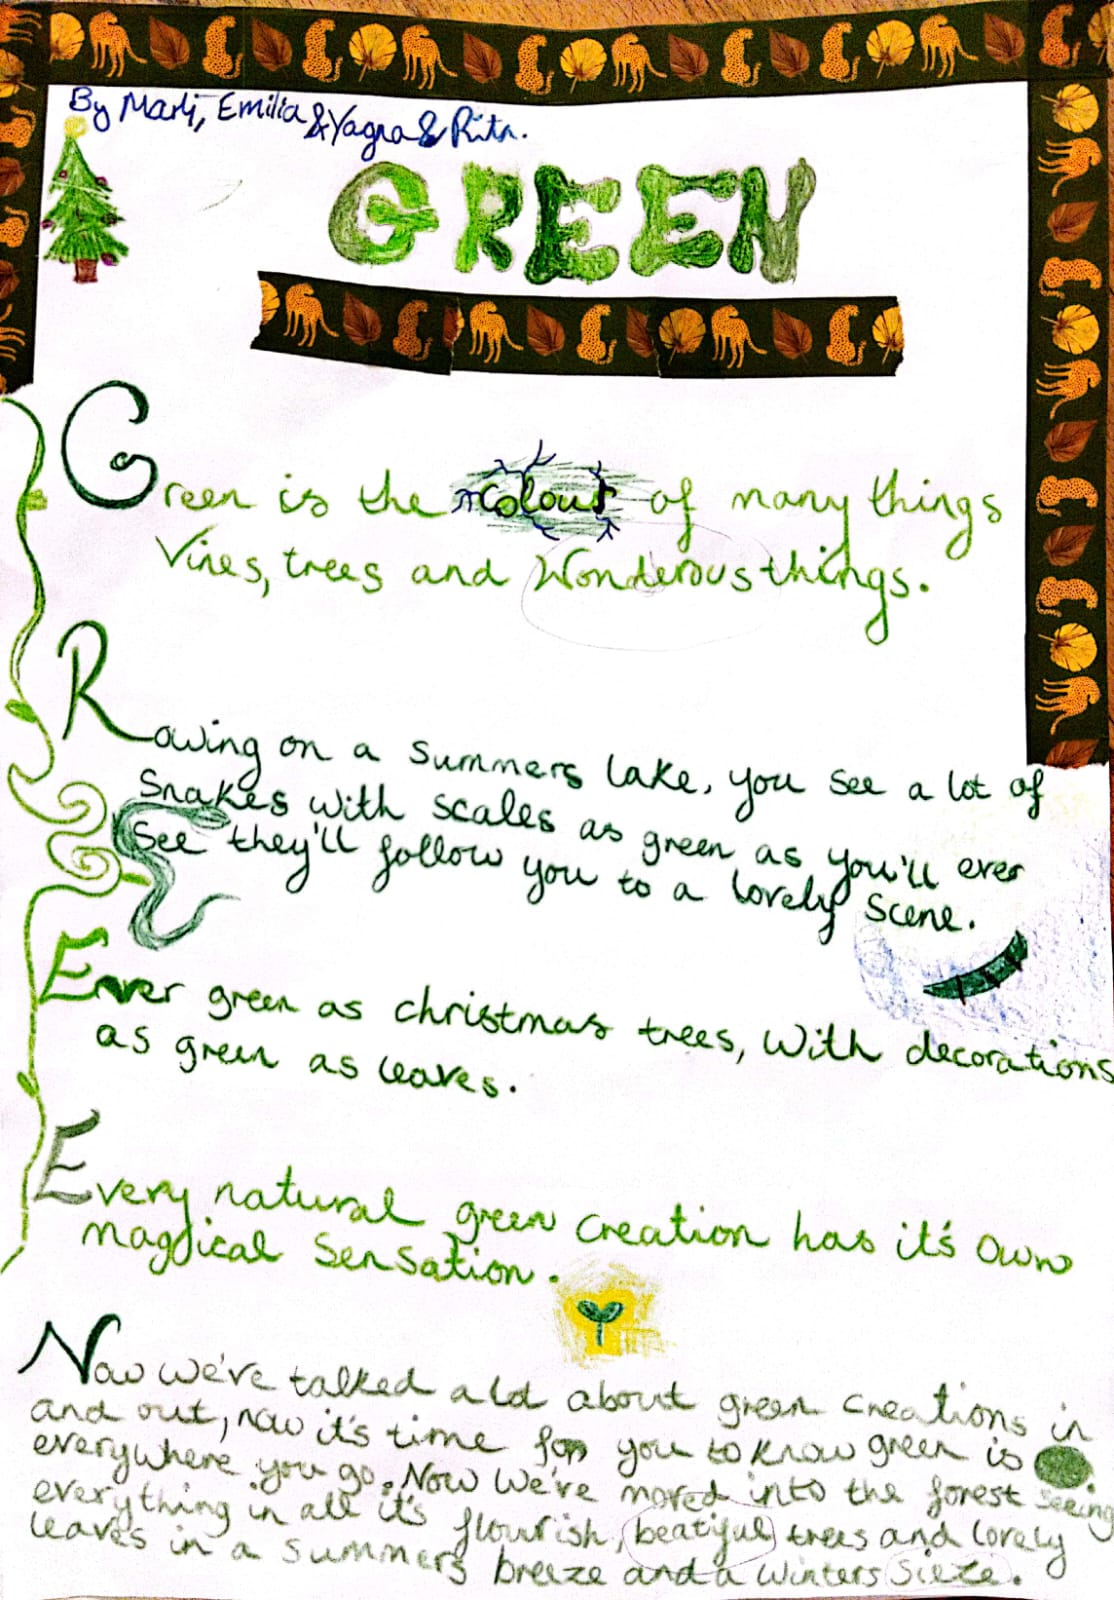 By Marli, Emilia & Yagna & Rita.
GREEN
Green is the colour of many things
Vines, trees and Wonderous things.
Rowing on a summers lake, you see a lot of
Snakes with scales as green as you'll ever
See they'll follow you to a lovely scene.
Ever green as christmas trees, With decorations
as green as leaves.
Every natural green creation has it's own
magical sensation.
Now we've talked a lot about green creations in
and out, now it's time for you to know green is
everywhere you go. Now We've moved into the forest seeing
everything in all it's flourish, beatiful trees and lovely
leaves in a summers breeze and a winters sieze.